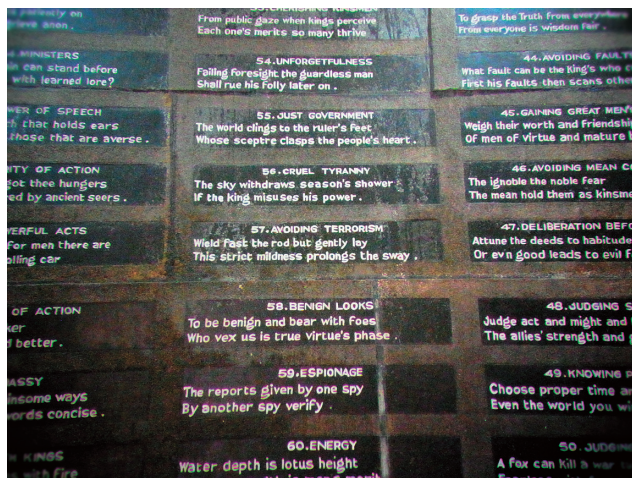 ently on
ieve anon .
MINISTERS
can stand before
with learned lore?
WER OF SPEECH
that holds ears
those that are averse .
ITY OF ACTION
got thee hungers
ed by ancient seers .
WERFUL ACTS
For men there are
olling car
OF ACTION
ker
d better .
ASSY
insome ways
words concise .
KINGS
with Fire
53.CHERISHING KINSMEN
From public gaze when kings perceive
Each one's merits so many thrive
54.UNFORGETFULNESS
Failing foresight the guardless man
Shall rue his folly later on .
55.JUST GOVERNMENT
The world clings to the ruler's feet
Whose sceptre clasps the people's heart .
56.CRUEL TYRANNY
The sky withdraws season's shower
If the king misuses his power .
57.AVOIDING TERRORISM
Wield fast the rod but gently lay
This strict mildness prolongs the sway .
58.BENIGN LOOKS
To be benign and bear with foes
Who vex us is true virtue's phase .
59.ESPIONAGE
The reports given by one spy
By another spy verify .
60.ENERGY
Water depth is lotus height
To grasp the Truth from everywhere
From everyone is wisdom fair .
44.AVOIDING FAULT
What Fault can be the King's who c
First his Faults then scans othe
45.GAINING GREAT MEN'
Weigh their worth and friendship
Of men of virtue and mature
46.AVOIDING MEAN CO
The ignoble the noble fear
The mean hold them as kinsme
47.DELIBERATION BEFO
Attune the deeds to habitude
Or ev'n good leads to evil f
48.JUDGING S
Judge act and might and
The allies' strength and
49.KNOWING P
Choose proper time an
Even the world you wi
50.JUDGING
A fox can kill a war